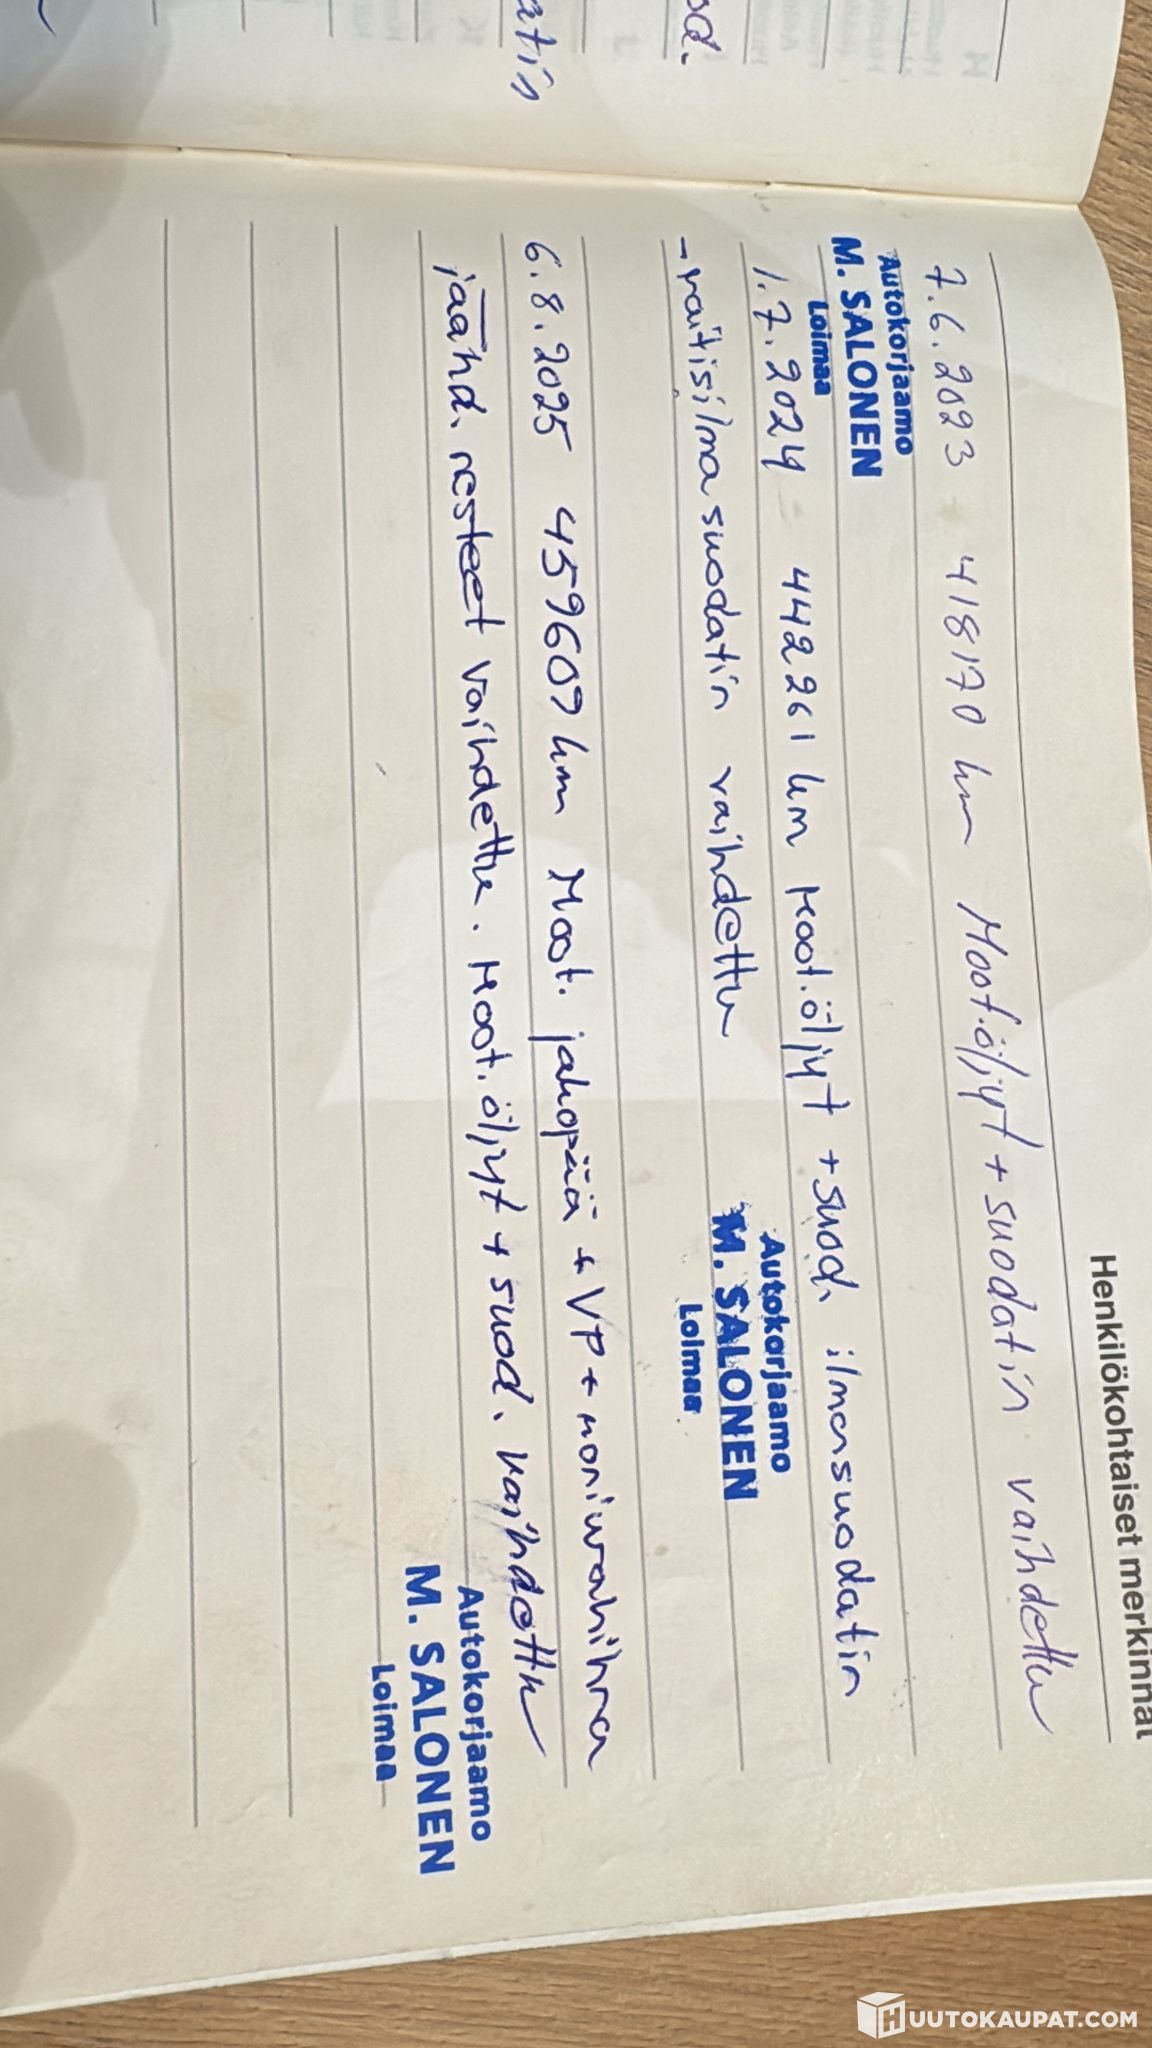 atin
od.
Henkilökohtaiset merkinnät
7.6.2023 418170 km Moot.öljyt + suodatin vaihdettu
Autokorjaamo
M. SALONEN
Loimaa
1.7.2024 442261 km Moot.öljyt + suod. ilmansuodatin
- raitisilmasuodatin vaihdettu
Autokorjaamo
M. SALONEN
Loimaa
6.8.2025 459607 km Moot. jakopää + VP + moniurahihna
jäähd. nesteet vaihdettu. Moot.öljyt + suod. vaihdettu
Autokorjaamo
M. SALONEN
Loimaa
HUUTOKAUPAT.COM